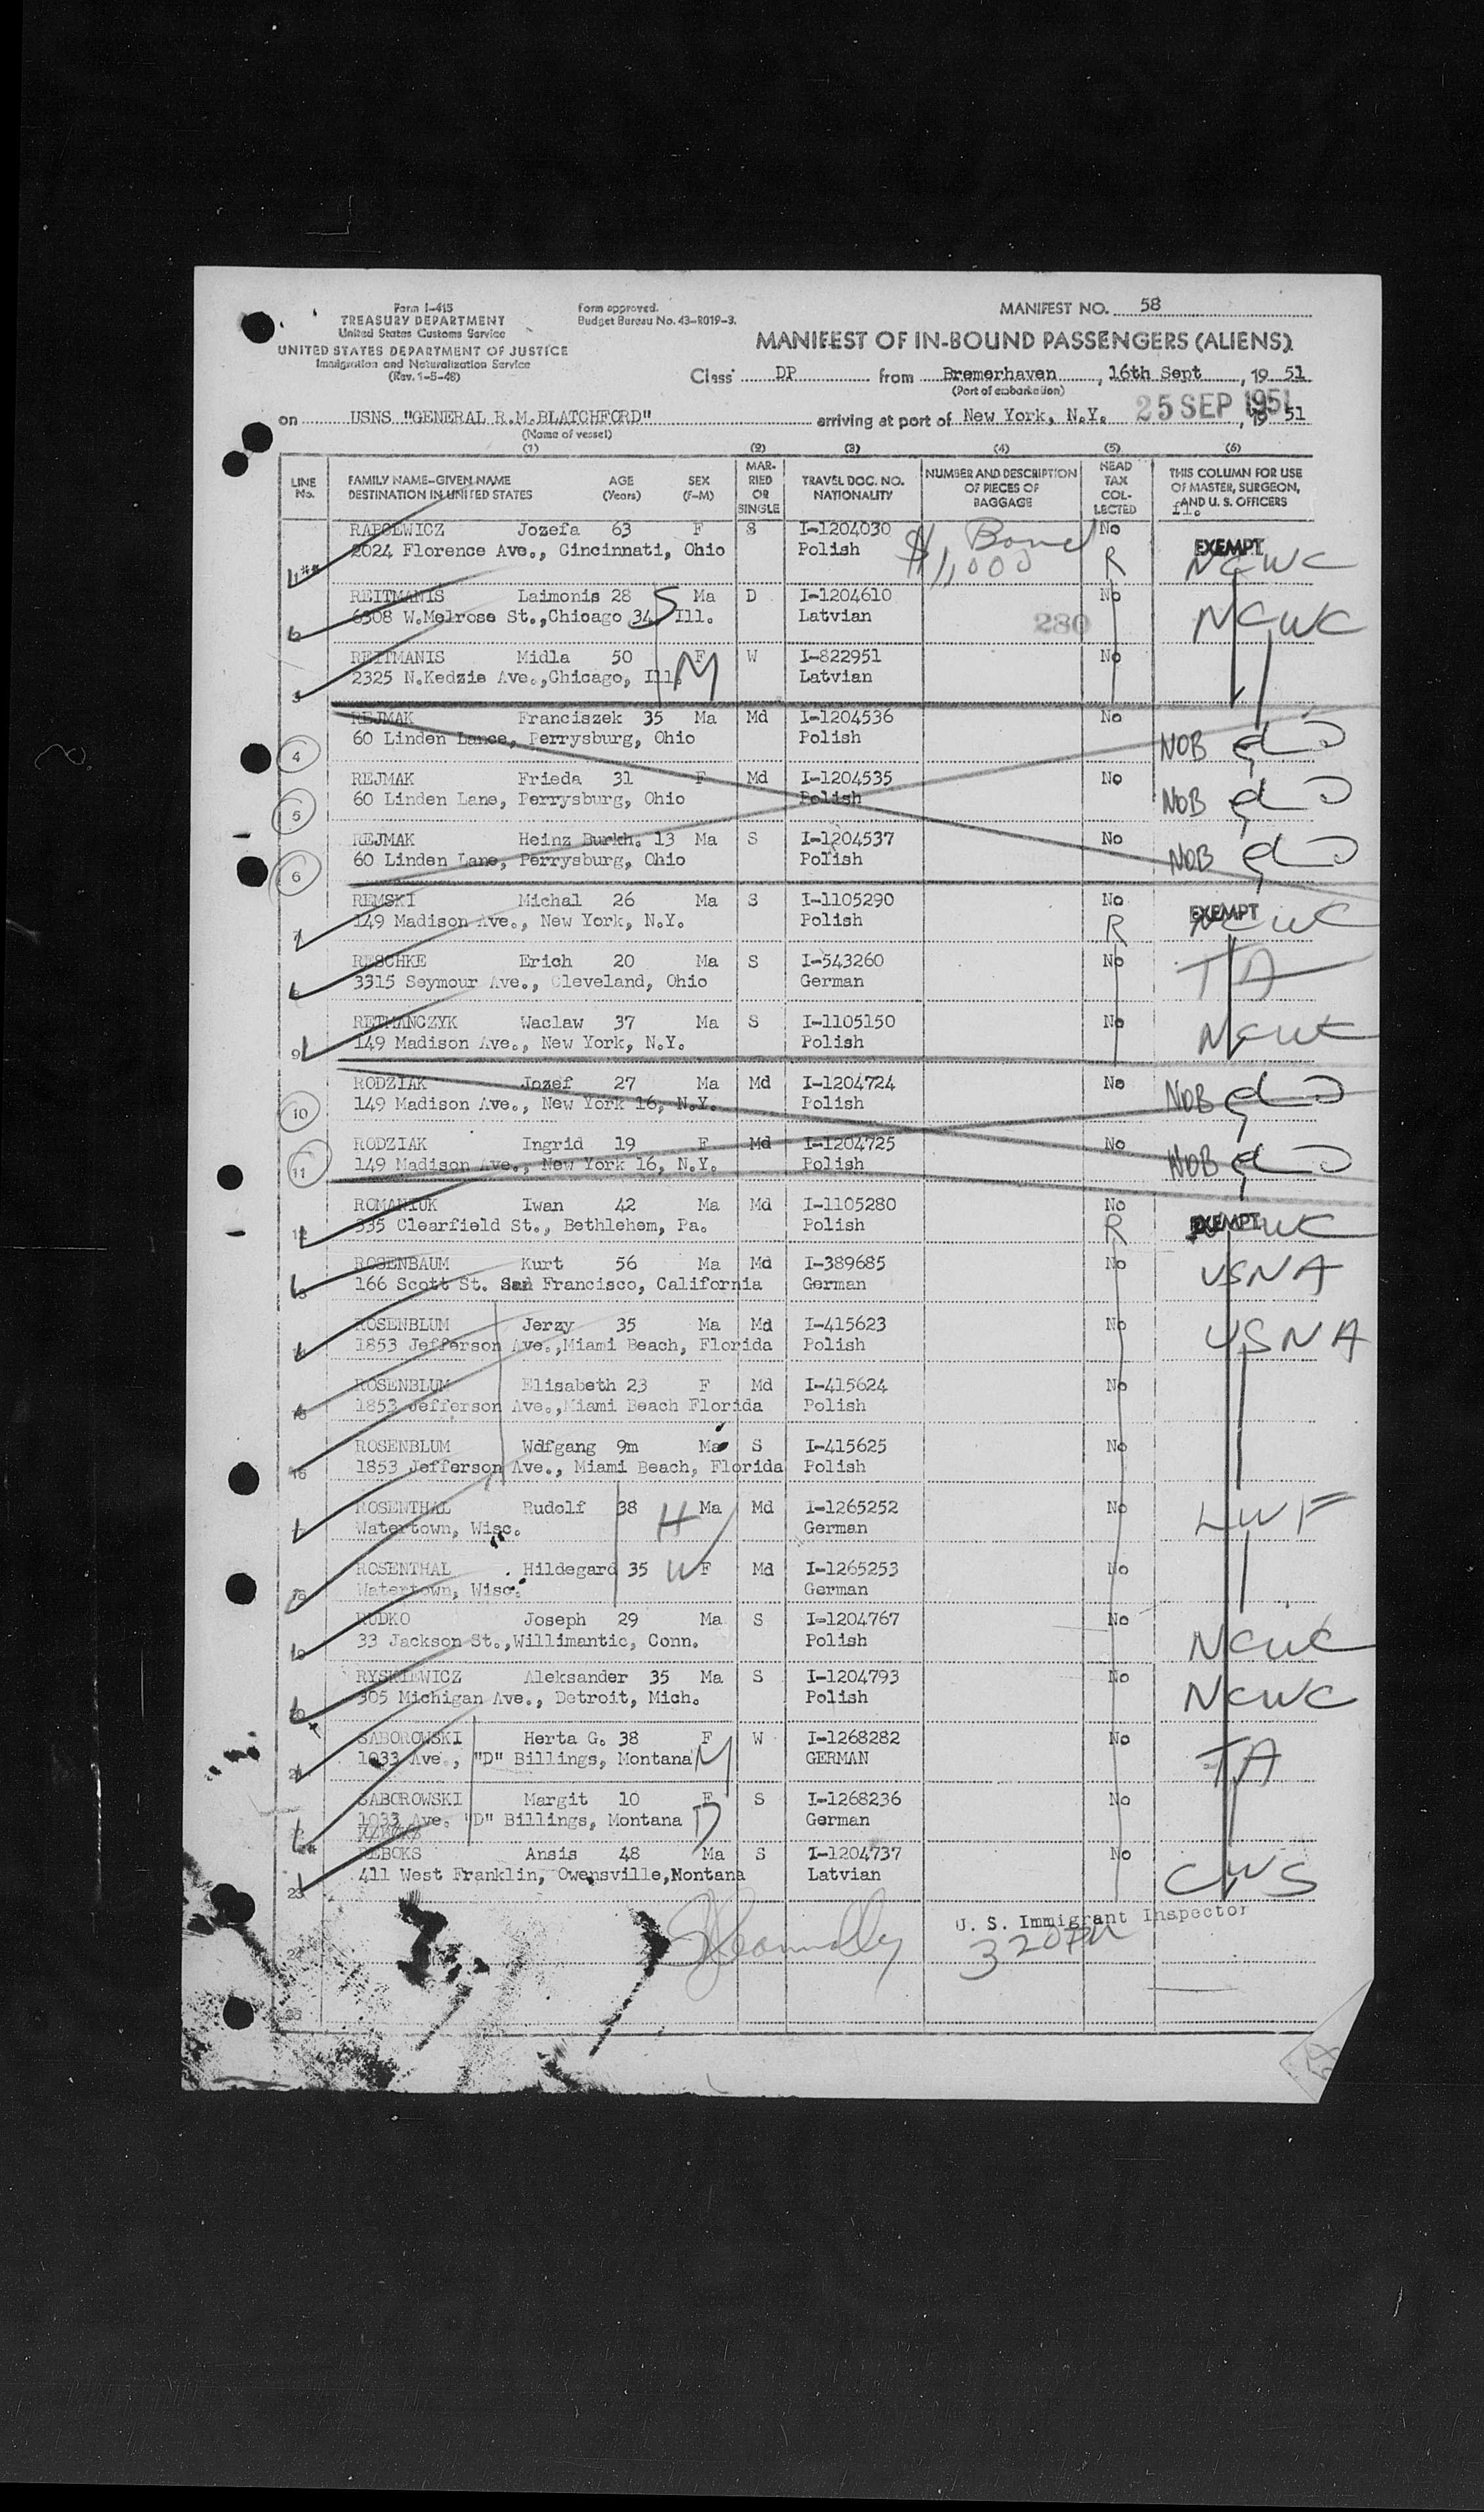 Form I-415
TREASURY DEPARTMENT
United States Customs Service
UNITED STATES DEPARTMENT OF JUSTICE
Immigration and Naturalization Service
(Rev. 1-5-48)
Form approved.
Budget Bureau No. 43-R019-3.
MANIFEST NO. 58
MANIFEST OF IN-BOUND PASSENGERS (ALIENS)
Class DP from Bremerhaven, 16th Sept, 19 51
(Port of embarkation)
on USNS "GENERAL R.M.BLATCHFORD" arriving at port of New York, N.Y. 25 SEP 1951, 19 51
(Name of vessel)
(1) (2) (3) (4) (5) (6)
LINE No. FAMILY NAME-GIVEN NAME DESTINATION IN UNITED STATES AGE (Years) SEX (F-M) MARRIED OR SINGLE TRAVEL DOC. NO. NATIONALITY NUMBER AND DESCRIPTION OF PIECES OF BAGGAGE HEAD TAX COLLECTED THIS COLUMN FOR USE OF MASTER, SURGEON, AND U. S. OFFICERS
Jozefa 63 F S I-1204030 $1,000 Bond No EXEMPT
2024 Florence Ave., Cincinnati, Ohio Polish R NCWC
REITMANIS Laimonis 28 S Ma D I-1204610 No
6308 W.Melrose St.,Chicago 34, Ill. Latvian 280 NCWC
REITMANIS Midla 50 F W I-822951 No
3 2325 N.Kedzie Ave.,Chicago, Ill. M Latvian
REJMAK Franciszek 35 Ma Md I-1204536 No
4 60 Linden Lance, Perrysburg, Ohio Polish NOB
REJMAK Frieda 31 F Md I-1204535 No
5 60 Linden Lane, Perrysburg, Ohio Polish NOB
REJMAK Heinz Burkh. 13 Ma S I-1204537 No
6 60 Linden Lane, Perrysburg, Ohio Polish NOB
REMSKI Michal 26 Ma S I-1105290 No EXEMPT
7 149 Madison Ave., New York, N.Y. Polish R NCWC
RESCHKE Erich 20 Ma S I-543260 No
8 3315 Seymour Ave., Cleveland, Ohio German TA
RETMANCZYK Waclaw 37 Ma S I-1105150 No
9 149 Madison Ave., New York, N.Y. Polish NCWC
RODZIAK Jozef 27 Ma Md I-1204724 No
10 149 Madison Ave., New York 16, N.Y. Polish NOB
RODZIAK Ingrid 19 F Md I-1204725 No
11 149 Madison Ave., New York 16, N.Y. Polish NOB
ROMANIUK Iwan 42 Ma Md I-1105280 No EXEMPT
12 335 Clearfield St., Bethlehem, Pa. Polish R NCWC
ROSENBAUM Kurt 56 Ma Md I-389685 No
166 Scott St. San Francisco, California German USNA
ROSENBLUM Jerzy 35 Ma Md I-415623 No
1853 Jefferson Ave.,Miami Beach, Florida Polish USNA
ROSENBLUM Elisabeth 23 F Md I-415624 No
1853 Jefferson Ave.,Miami Beach Florida Polish
ROSENBLUM Wolfgang 9m Ma S I-415625 No
16 1853 Jefferson Ave., Miami Beach, Florida Polish
ROSENTHAL Rudolf 38 H Ma Md I-1265252 No
Watertown, Wisc. German LWF
ROSENTHAL Hildegard 35 W F Md I-1265253 No
Watertown, Wisc. German
RUDKO Joseph 29 Ma S I-1204767 No
33 Jackson St.,Willimantic, Conn. Polish NCWC
RYSKIEWICZ Aleksander 35 Ma S I-1204793 No
305 Michigan Ave., Detroit, Mich. Polish NCWC
SABOROWSKI Herta G. 38 F W I-1268282 No
1033 Ave., "D" Billings, Montana M GERMAN TA
SABOROWSKI Margit 10 F S I-1268236 No
1033 Ave. "D" Billings, Montana D German
Ansis 48 Ma S I-1204737 No
23 411 West Franklin, Owensville,Montana Latvian CWS
U. S. Immigrant Inspector
3 20 PM